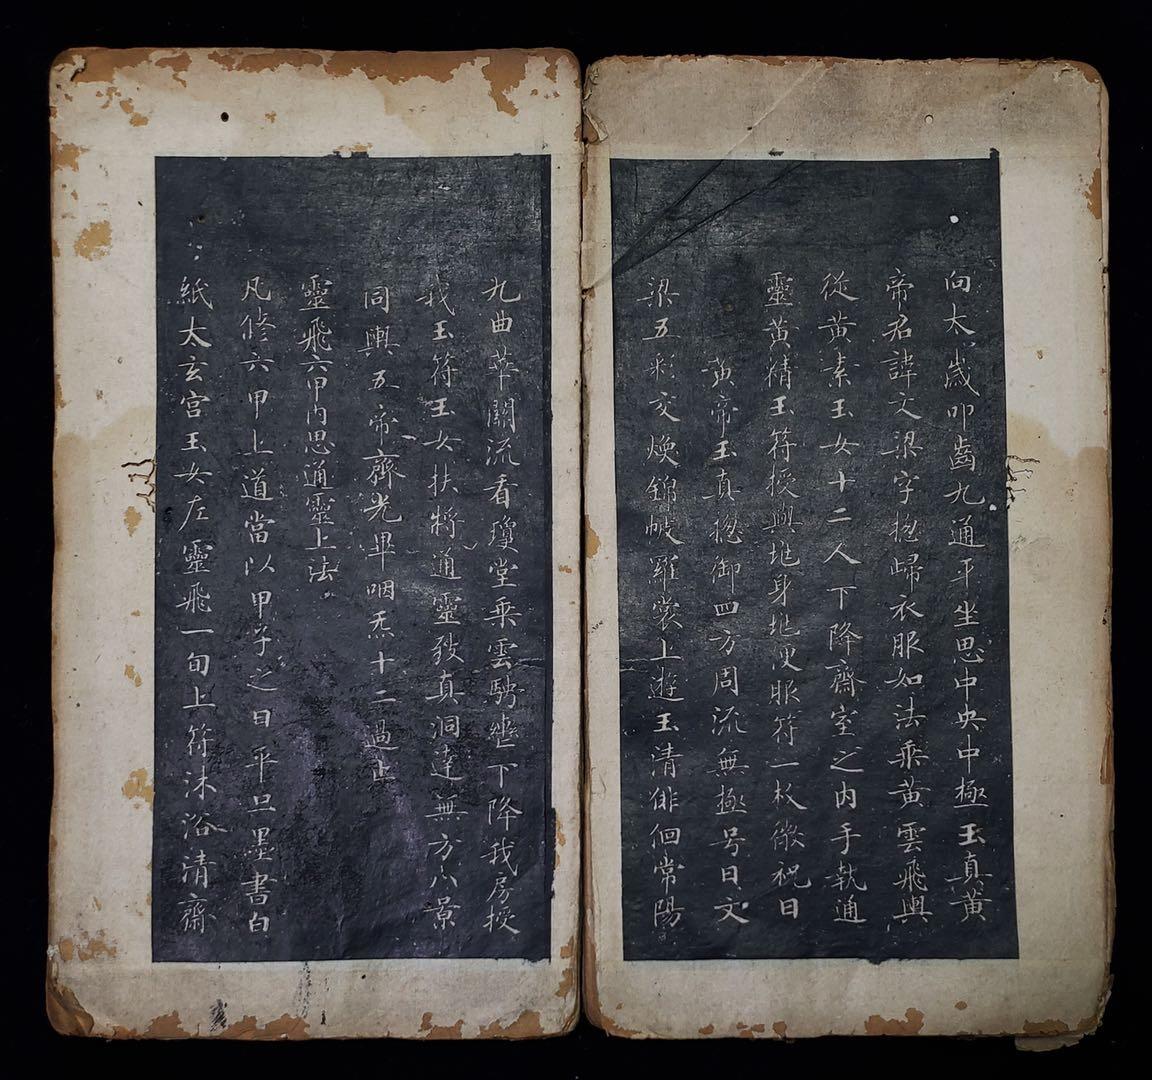 向太歲叩齒九通平坐思中央中極玉真黃
帝君諱文梁字揔歸衣服如法乘黃雲飛輿
從黃素玉女十二人下降齋室之内手執通
靈黃精玉符授與地身地便服符一枚微祝曰
黃帝玉真揔御四方周流無極号曰文
梁五彩交煥錦帔羅裳上遊玉清俳佪常陽
九曲華關流看瓊堂乘雲騁轡下降我房授
我玉符玉女扶將通靈致真洞達無方八景
同輿五帝齊光畢咽炁十二過止
靈飛六甲内思通靈上法
凡修六甲上道當以甲子之日平旦墨書白
紙太玄宫玉女左靈飛一旬上符沐浴清齋